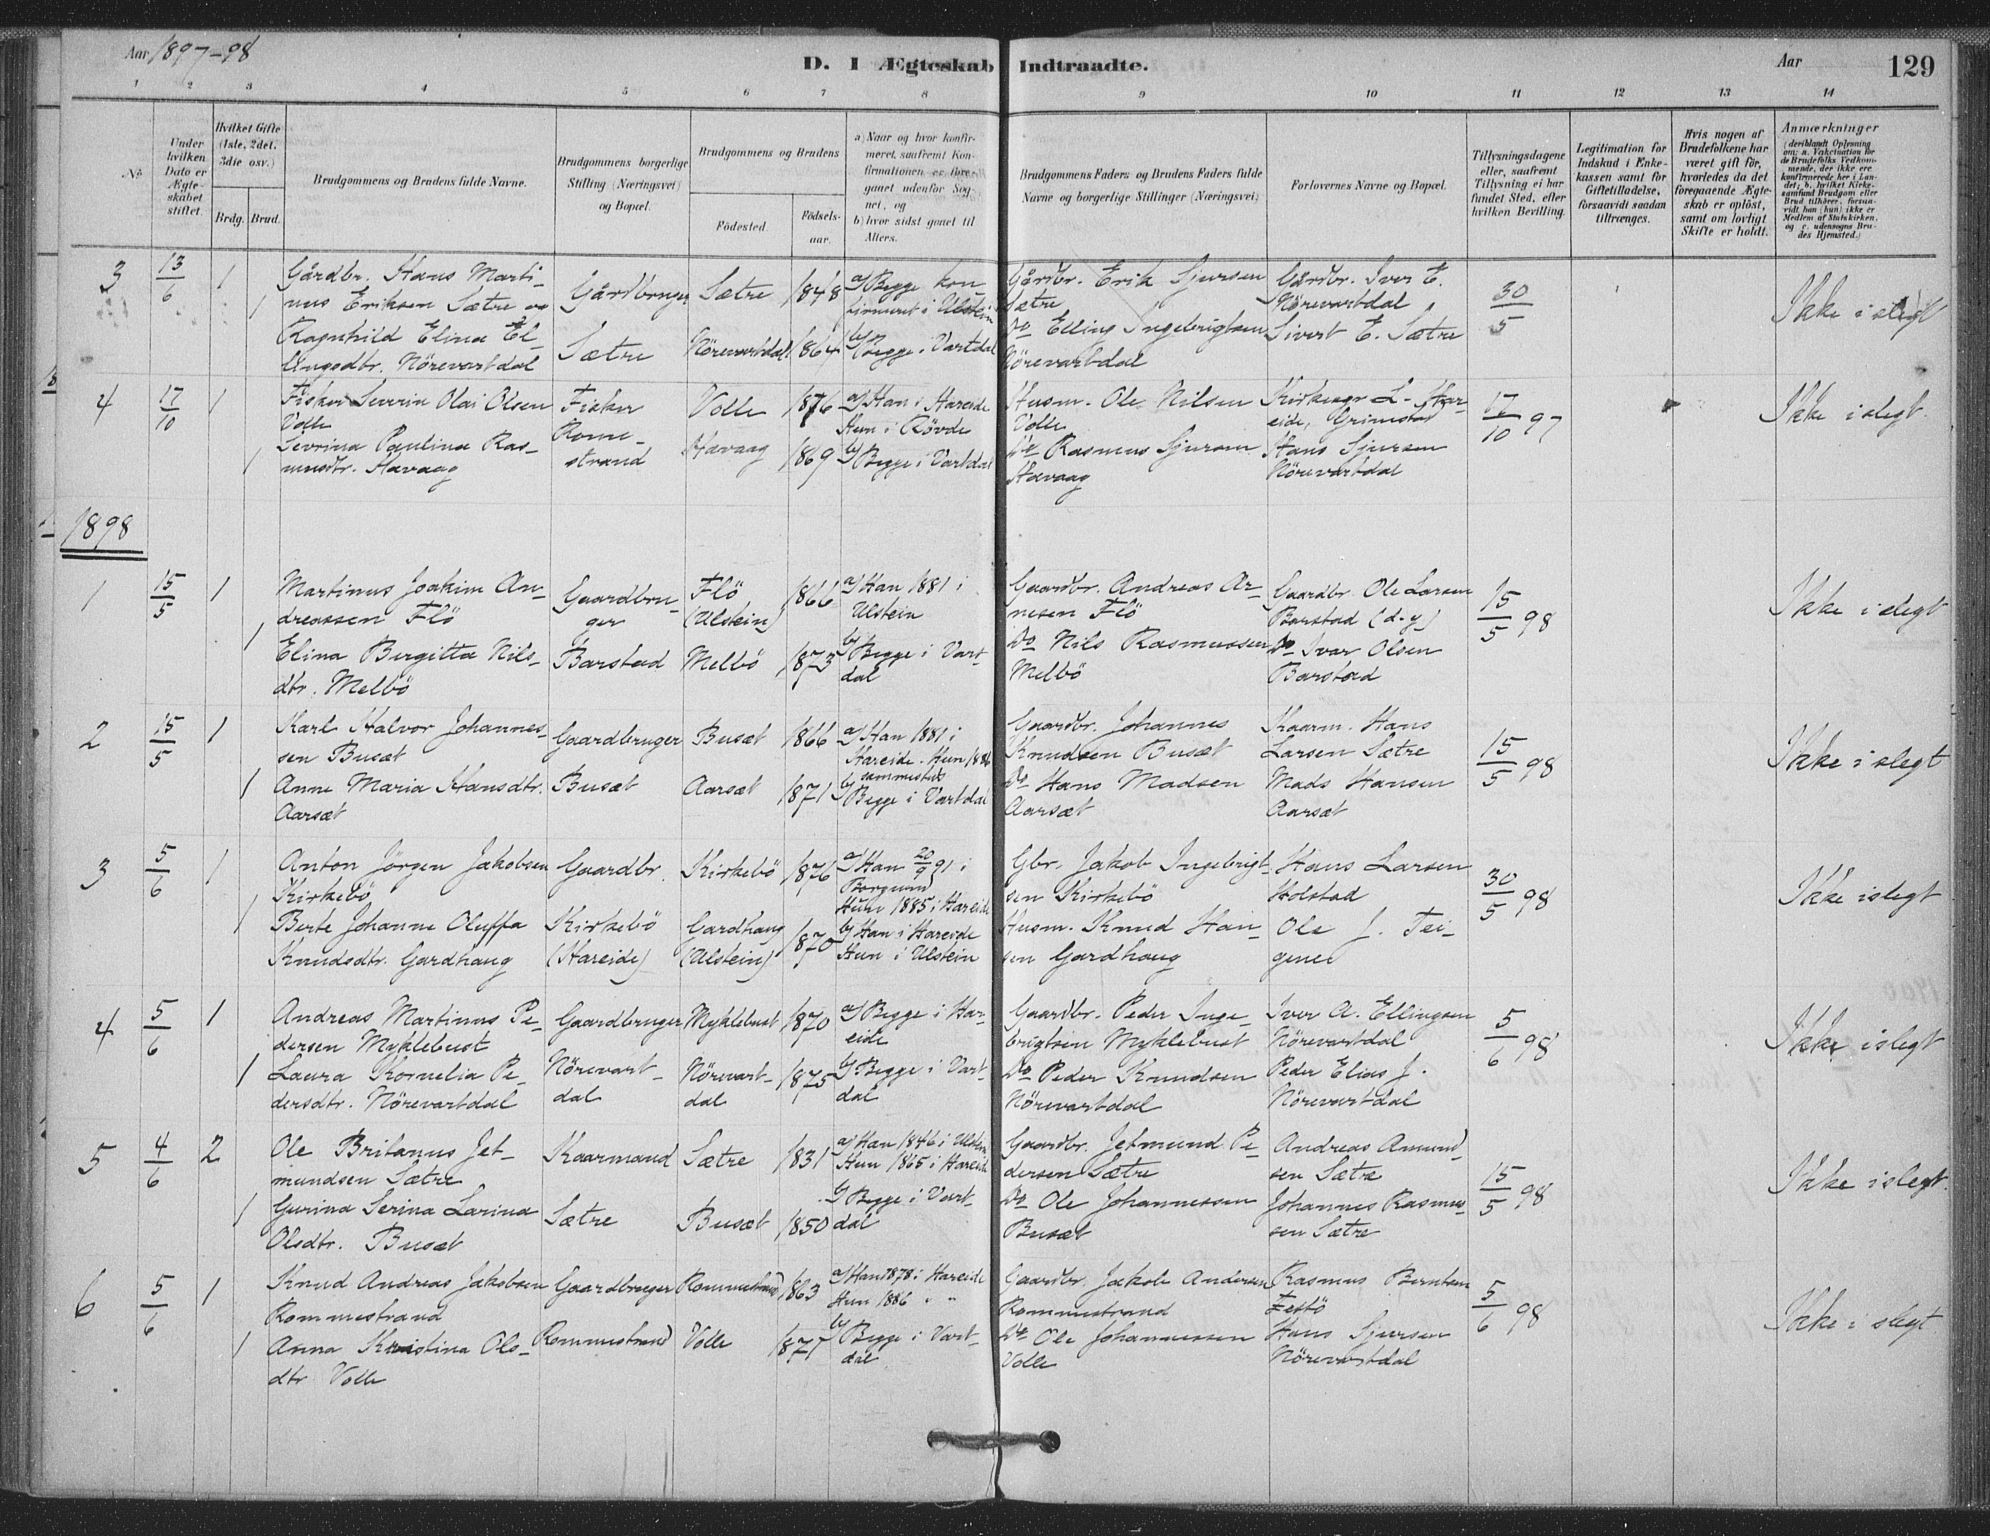 Aar 1897-98
D. I Ægteskab Indtraadte.
Aar
129
1 2 3 4 5 6 7 8 9 10 11 12 13 14
No
Under hvilken Dato er Ægteskabet stiftet.
Hvilket Gifte (1ste, 2det, 3die osv.)
Brdg. Brud.
Brudgommens og Brudens fulde Navne.
Brudgommens borgerlige Stilling (Næringsvei) og Bopæl.
Brudgommens og Brudens
Fødested.
Fødselsaar.
a) Naar og hvor konfirmeret, saafremt Konfirmationen er foregaaet udenfor Sognet, og
b) hvor sidst gaaet til Alters.
Brudgommens Faders og Brudens Faders fulde Navne og borgerlige Stillinger (Næringsvei)
Forlovernes Navne og Bopæl.
Tillysningsdagene eller, saafremt Tillysning ei har fundet Sted, efter hvilken Bevilling.
Legitimation for Indskud i Enkekassen samt for Giftetilladelse, forsaavidt saadan tiltrænges.
Hvis nogen af Brudefolkene har været gift før, hvorledes da det foregaaende Ægteskab er opløst, samt om lovligt Skifte er holdt.
Anmærkninger (deriblandt Oplysning om: a. Vakcination for de Brudefolks Vedkommende, der ikke ere konfirmerede her i Landet; b. hvilket Kirkesamfund Brudgom eller Brud tilhører, forsaavidt han (hun) ikke er Medlem af Statskirken, og c. udensogns Brudes Hjemsted.)
3 13/6 1 Gårdbr. Hans Marti- Gårdbruger Sætre 1848 a) Begge kon- Gårdbr. Erik Sjursen Gårdbr. Iver E. 30/5 Ikke i slegt
1 nus Eriksen Sætre og firmeret i Ulstein Sætre Nörevartdal
Ragnhild Elina El- Sætre Nörevartdal 1864 b) Begge i Vartdal Do Elling Ingebrigtsen Sivert E. Sætre
lingsdtr. Nörevartdal Nörevartdal
4 17/10 1 Fisker Severin Olai Olsen Fisker Volle 1876 a) Han i Hareide Husm. Ole Nilsen Kirkesgr L. Har- 17/10 97 Ikke i slegt
Volle Rome- Hun i Rövde Volle eide, Grimstad
1 Sevrina Paulina Ras- strand Havaag 1869 b) Begge i Vartdal Do Rasmus Sjursen Hans Sjursen
musdtr. Havaag Havaag Nörevartdal
1898
1 15/5 1 Martinus Joakim An- Gaardbru- Flö 1866 a) Han 1881 i Gaardbr. Andreas Ar- Gaardbr. Ole Larsen 15/5 98 Ikke i slegt
dreassen Flö ger (Ulstein) Ulstein nesen Flö Barstad (d.y)
1 Elina Birgitta Nils- Barstad Melbö 1873 b) Begge i Vart- Do Nils Rasmussen Do Ivar Olsen
dtr. Melbö dal Melbö Barstad
2 15/5 1 Karl Halvor Johannes- Gaardbruger Busæt 1866 a) Han 1881 i Gaardbr. Johannes Kaarm. Hans 15/5 98 Ikke i slegt
sen Busæt Hareide. Hun 1886 Knudsen Busæt Larsen Sætre
sammesteds
1 Anne Maria Hansdtr. Busæt Aarsæt 1871 b) Begge i Vartdal Do Hans Madsen Mads Hansen
Aarsæt Aarsæt Aarsæt
3 5/6 1 Anton Jörgen Jakobsen Gaardbr. Kirkebö 1876 a) Han 20/9 91 i Gbr. Jakob Ingebrigt- Hans Larsen 30/5 98 Ikke i slegt
Kirkebö Borgund sen Kirkebö Holstad
Hun 1885 i Hareide
1 Berte Johanne Oluffa Kirkebö Gardhaug 1870 b) Han i Hareide Husm. Knud Han- Ole J. Tei-
Knudsdtr. Gardhaug (Hareide) (Ulstein) Hun i Ulstein sen Gardhaug genes
4 5/6 1 Andreas Martinus Pe- Gaardbruger Myklebust 1870 a) Begge i Har- Gaardbr. Peder Inge- Iver A. Ellingsen 5/6 98 Ikke i slegt
dersen Myklebust eide brigtsen Myklebust Nörevartdal
1 Laura Kornelia Pe- Nörevart- Nörevart- 1875 b) Begge i Vart- Do Peder Knudsen Peder Elias J.
dersdtr. Nörevartdal dal dal dal Nörevartdal Nörevartdal
5 4/6 2 Ole Britanus Jet- Kaarmand Sætre 1831 a) Han 1846 i Ulstein Gaardbr. Jetmund Pe- Andreas Amund- 15/5 98 Ikke i slegt.
mundsen Sætre Hun 1865 i Hareide dersen Sætre sen Sætre
1 Gurina Serina Larina Sætre Busæt 1850 b) Begge i Vart- Do Ole Johannessen Johannes Rasmus-
Olsdtr. Busæt dal Busæt sen Sætre
6 5/6 1 Knud Andreas Jakobsen Gaardbruger Rommestrand 1863 a) Han 1878 i Hareide Gaardbr. Jakob Andersen Rasmus Berntsen 5/6 98 Ikke i slegt
Rommestrand Hun 1886 " " Rommestrand Festö
1 Anna Kristina Ols- Rommestrand Volle 1871 b) Begge i Vart- Do Ole Johannessen Hans Sjursen
dtr Volle dal Volle Nörevartdal